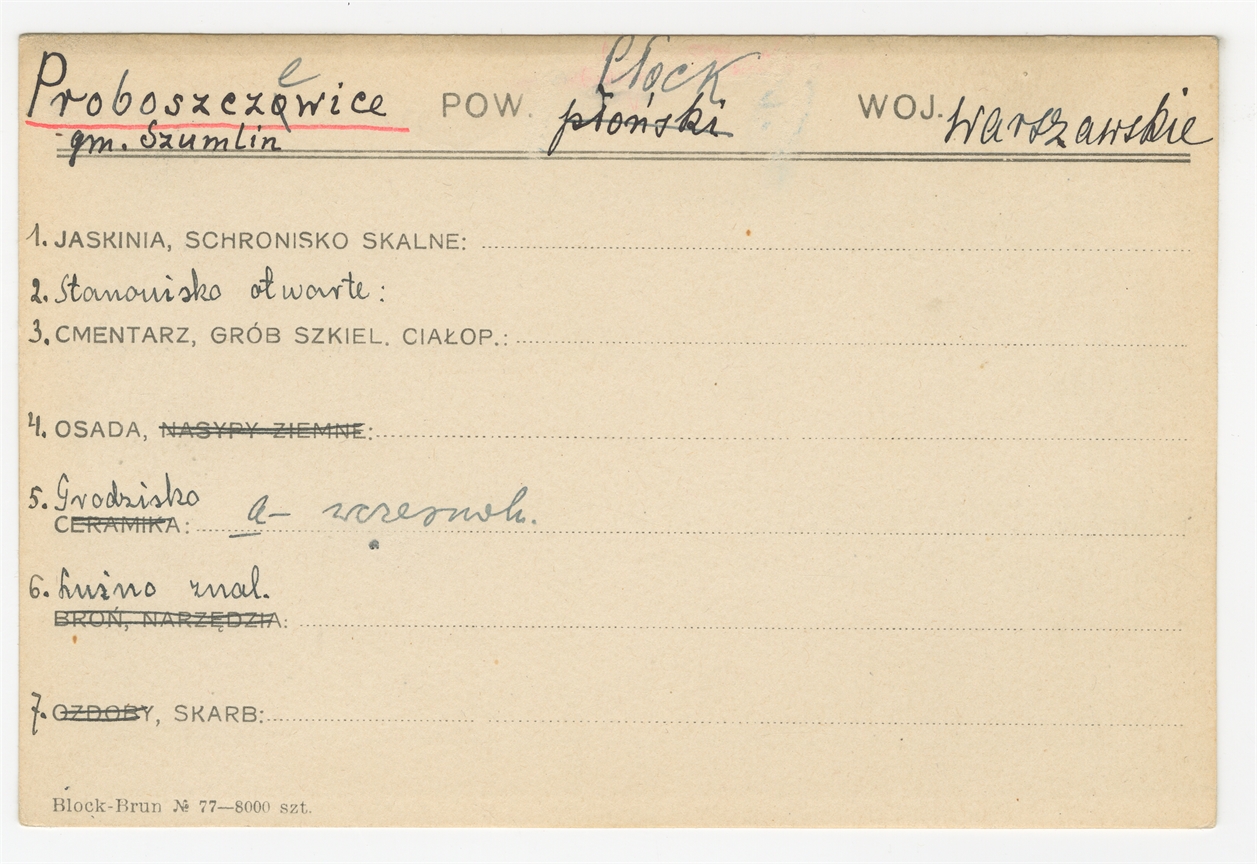 Proboszczewice POW. Płock płoński WOJ. Warszawskie
gm. Szumlin
1. JASKINIA, SCHRONISKO SKALNE:
2. Stanowisko otwarte:
3. CMENTARZ, GRÓB SZKIEL. CIAŁOP.:
4. OSADA, NASYPY ZIEMNE:
5. Grodzisko
CERAMIKA: a- wczesnoh.
6. Luźno znal.
BROŃ, NARZĘDZIA:
7. OZDOBY, SKARB:
Block-Brun № 77—8000 szt.